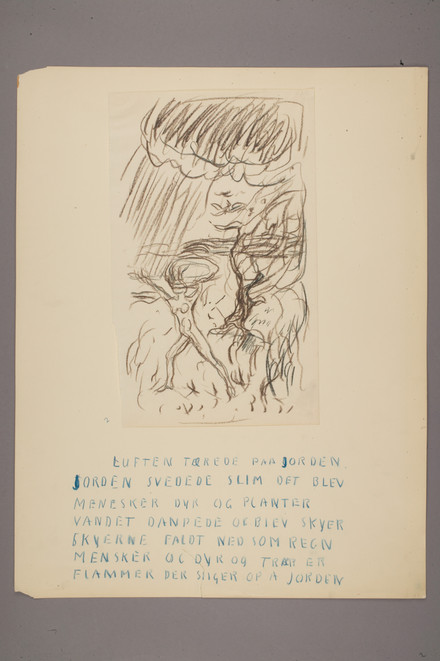 LUFTEN TÆREDE PAA JORDEN
JORDEN SVEDEDE SLIM DET BLEV
MENESKER DYR OG PLANTER
VANDET DANPEDE OG BLEV SKYER
SKYERNE FALDT NED SOM REGN
MENSKER OG DYR OG TRÆR ER
FLAMMER DER STIGER OP A JORDEN